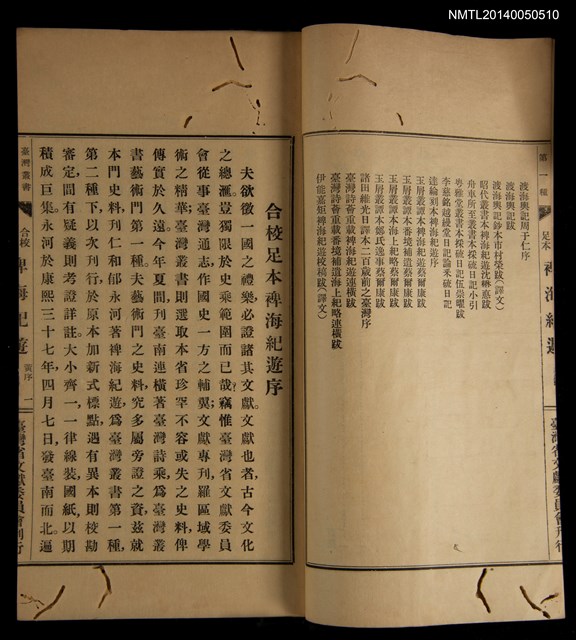 NMTL20140050510
第一種
足本 裨海紀遊
臺灣省文獻委員會刊行
渡海輿記周于仁序
渡海輿記跋
渡海輿記鈔本市村榮跋（譯文）
昭代叢書本裨海紀遊沈楙悳跋
舟車所至叢書本採硫日記小引
粤雅堂叢書本採硫日記伍崇曜跋
李慈銘越縵堂日記論釆硫日記
達綸刻本裨海紀遊序
玉屑叢譚本裨海紀遊蔡爾康跋
玉屑叢譚本番境補遺蔡爾康跋
玉屑叢譚本海上紀略蔡爾康跋
玉屑叢譚本鄭氏逸事蔡爾康跋
諸田維光日譯本二百歲前之臺灣序
臺灣詩薈重載裨海紀遊連橫跋
臺灣詩薈重載番境補遺海上紀略連橫跋
伊能嘉矩裨海紀遊校稿跋（譯文）
合校足本裨海紀遊序
夫欲徵一國之禮樂，必證諸其文獻。文獻也者，古今文化
之總滙，豈獨限於史乘範圍而已哉？竊惟臺灣省文獻委員
會從事臺灣通志，作國史一方之輔翼；文獻專刊，羅區域學
術之精華；臺灣叢書，則選取本省珍罕不容或失之史料，俾
傳實於久遠。今年夏間，刊臺南連橫著臺灣詩乘，爲臺灣叢
書藝術門第一種。夫藝術門之史料，究多屬旁證之資，茲就
本門史料，刊仁和郁永河著裨海紀遊，爲臺灣叢書第一種，
第二種下以次刊行。於原本加新式標點，遇有異本則校勘
審定，間有疑義則考證詳註。大小齊一，一律線裝，國紙，以期
積成巨集。永河於康熙三十七年四月七日，發臺南而北，遍
臺灣叢書
合校 裨海紀遊 黃序 一
臺灣省文獻委員會刊行